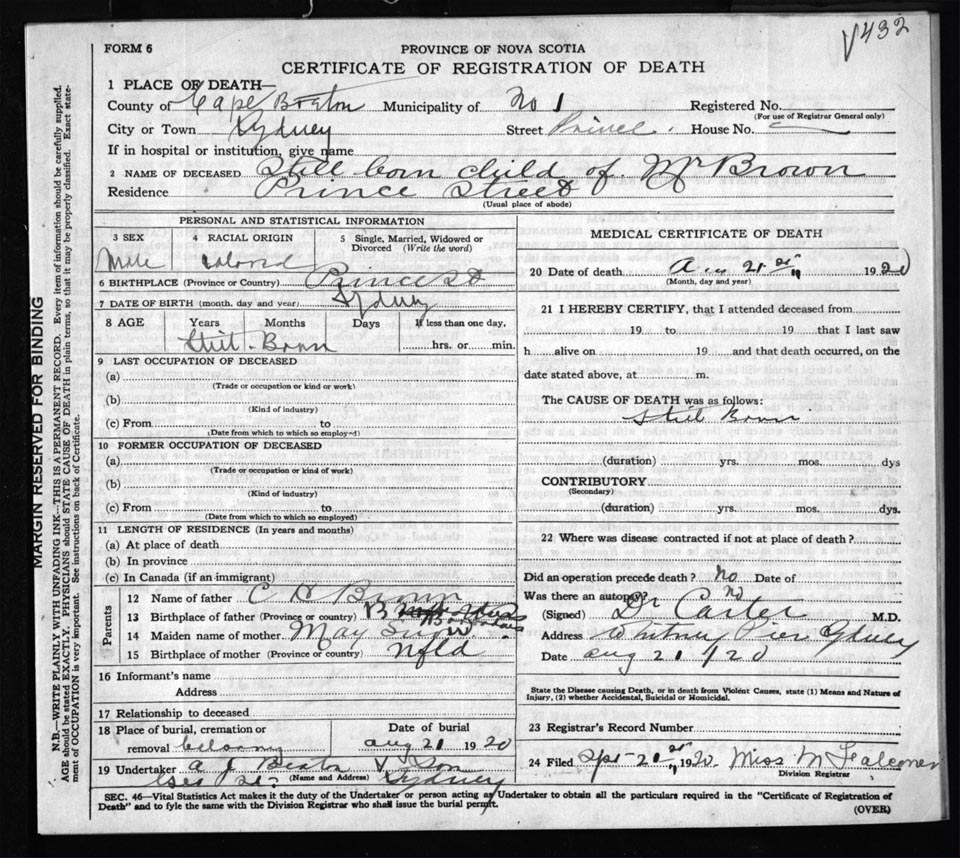 V432
FORM 6
PROVINCE OF NOVA SCOTIA
CERTIFICATE OF REGISTRATION OF DEATH
1 PLACE OF DEATH—
County of Cape Breton Municipality of No 1 Registered No.
(For use of Registrar General only)
City or Town Sydney Street Prince. House No.
If in hospital or institution, give name
2 NAME OF DECEASED Still born child of Mr Brown
Residence Prince Street
(Usual place of abode)
PERSONAL AND STATISTICAL INFORMATION
3 SEX 4 RACIAL ORIGIN 5 Single, Married, Widowed or
Divorced (Write the word)
Male Colored
6 BIRTHPLACE (Province or Country) Prince St
7 DATE OF BIRTH (month, day and year) Sydney
8 AGE Years Months Days If less than one day.
Still-Born hrs. or min.
9 LAST OCCUPATION OF DECEASED
(a)
(Trade or occupation or kind or work)
(b)
(Kind of industry)
(c) From to
(Date from which to which so employed)
10 FORMER OCCUPATION OF DECEASED
(a)
(Trade or occupation or kind of work)
(b)
(Kind of industry)
(c) From to
(Date from which to which so employed)
11 LENGTH OF RESIDENCE (In years and months)
(a) At place of death
(b) In province
(c) In Canada (if an immigrant)
Parents
12 Name of father C H Brown
13 Birthplace of father (Province or country) B
14 Maiden name of mother May
15 Birthplace of mother (Province or country) Nfld
16 Informant's name
Address
17 Relationship to deceased
18 Place of burial, cremation or Date of burial
removal aug 21 1920
19 Undertaker A J Beaton & Son
(Name and Address) Sydney
MEDICAL CERTIFICATE OF DEATH
20 Date of death 21st 1920
(Month, day and year)
21 I HEREBY CERTIFY, that I attended deceased from
19 to 19 that I last saw
h alive on 19 and that death occurred, on the
date stated above, at m.
The CAUSE OF DEATH was as follows:
Still Born
(duration) yrs. mos. dys
CONTRIBUTORY
(Secondary)
(duration) yrs. mos. dys.
22 Where was disease contracted if not at place of death?
Did an operation precede death? no Date of
Was there an autopsy? no
(Signed) Dr Carter M.D.
Address Whitney Pier Sydney
Date aug 21/20
State the Disease causing Death, or in death from Violent Causes, state (1) Means and Nature of
Injury, (2) whether Accidental, Suicidal or Homicidal.
23 Registrar's Record Number
24 Filed 21st 1920. Miss M Falconer
Division Registrar
SEC. 46—Vital Statistics Act makes it the duty of the Undertaker or person acting as Undertaker to obtain all the particulars required in the "Certificate of Registration of
Death" and to fyle the same with the Division Registrar who shall issue the burial permit.
(OVER)
MARGIN RESERVED FOR BINDING
N.B.—WRITE PLAINLY WITH UNFADING INK—THIS IS A PERMANENT RECORD. Every item of information should be carefully supplied.
AGE should be stated EXACTLY. PHYSICIANS should STATE CAUSE OF DEATH in plain terms, so that it may be properly classified. Exact state-
ment of OCCUPATION is very important. See instructions on back of Certificate.